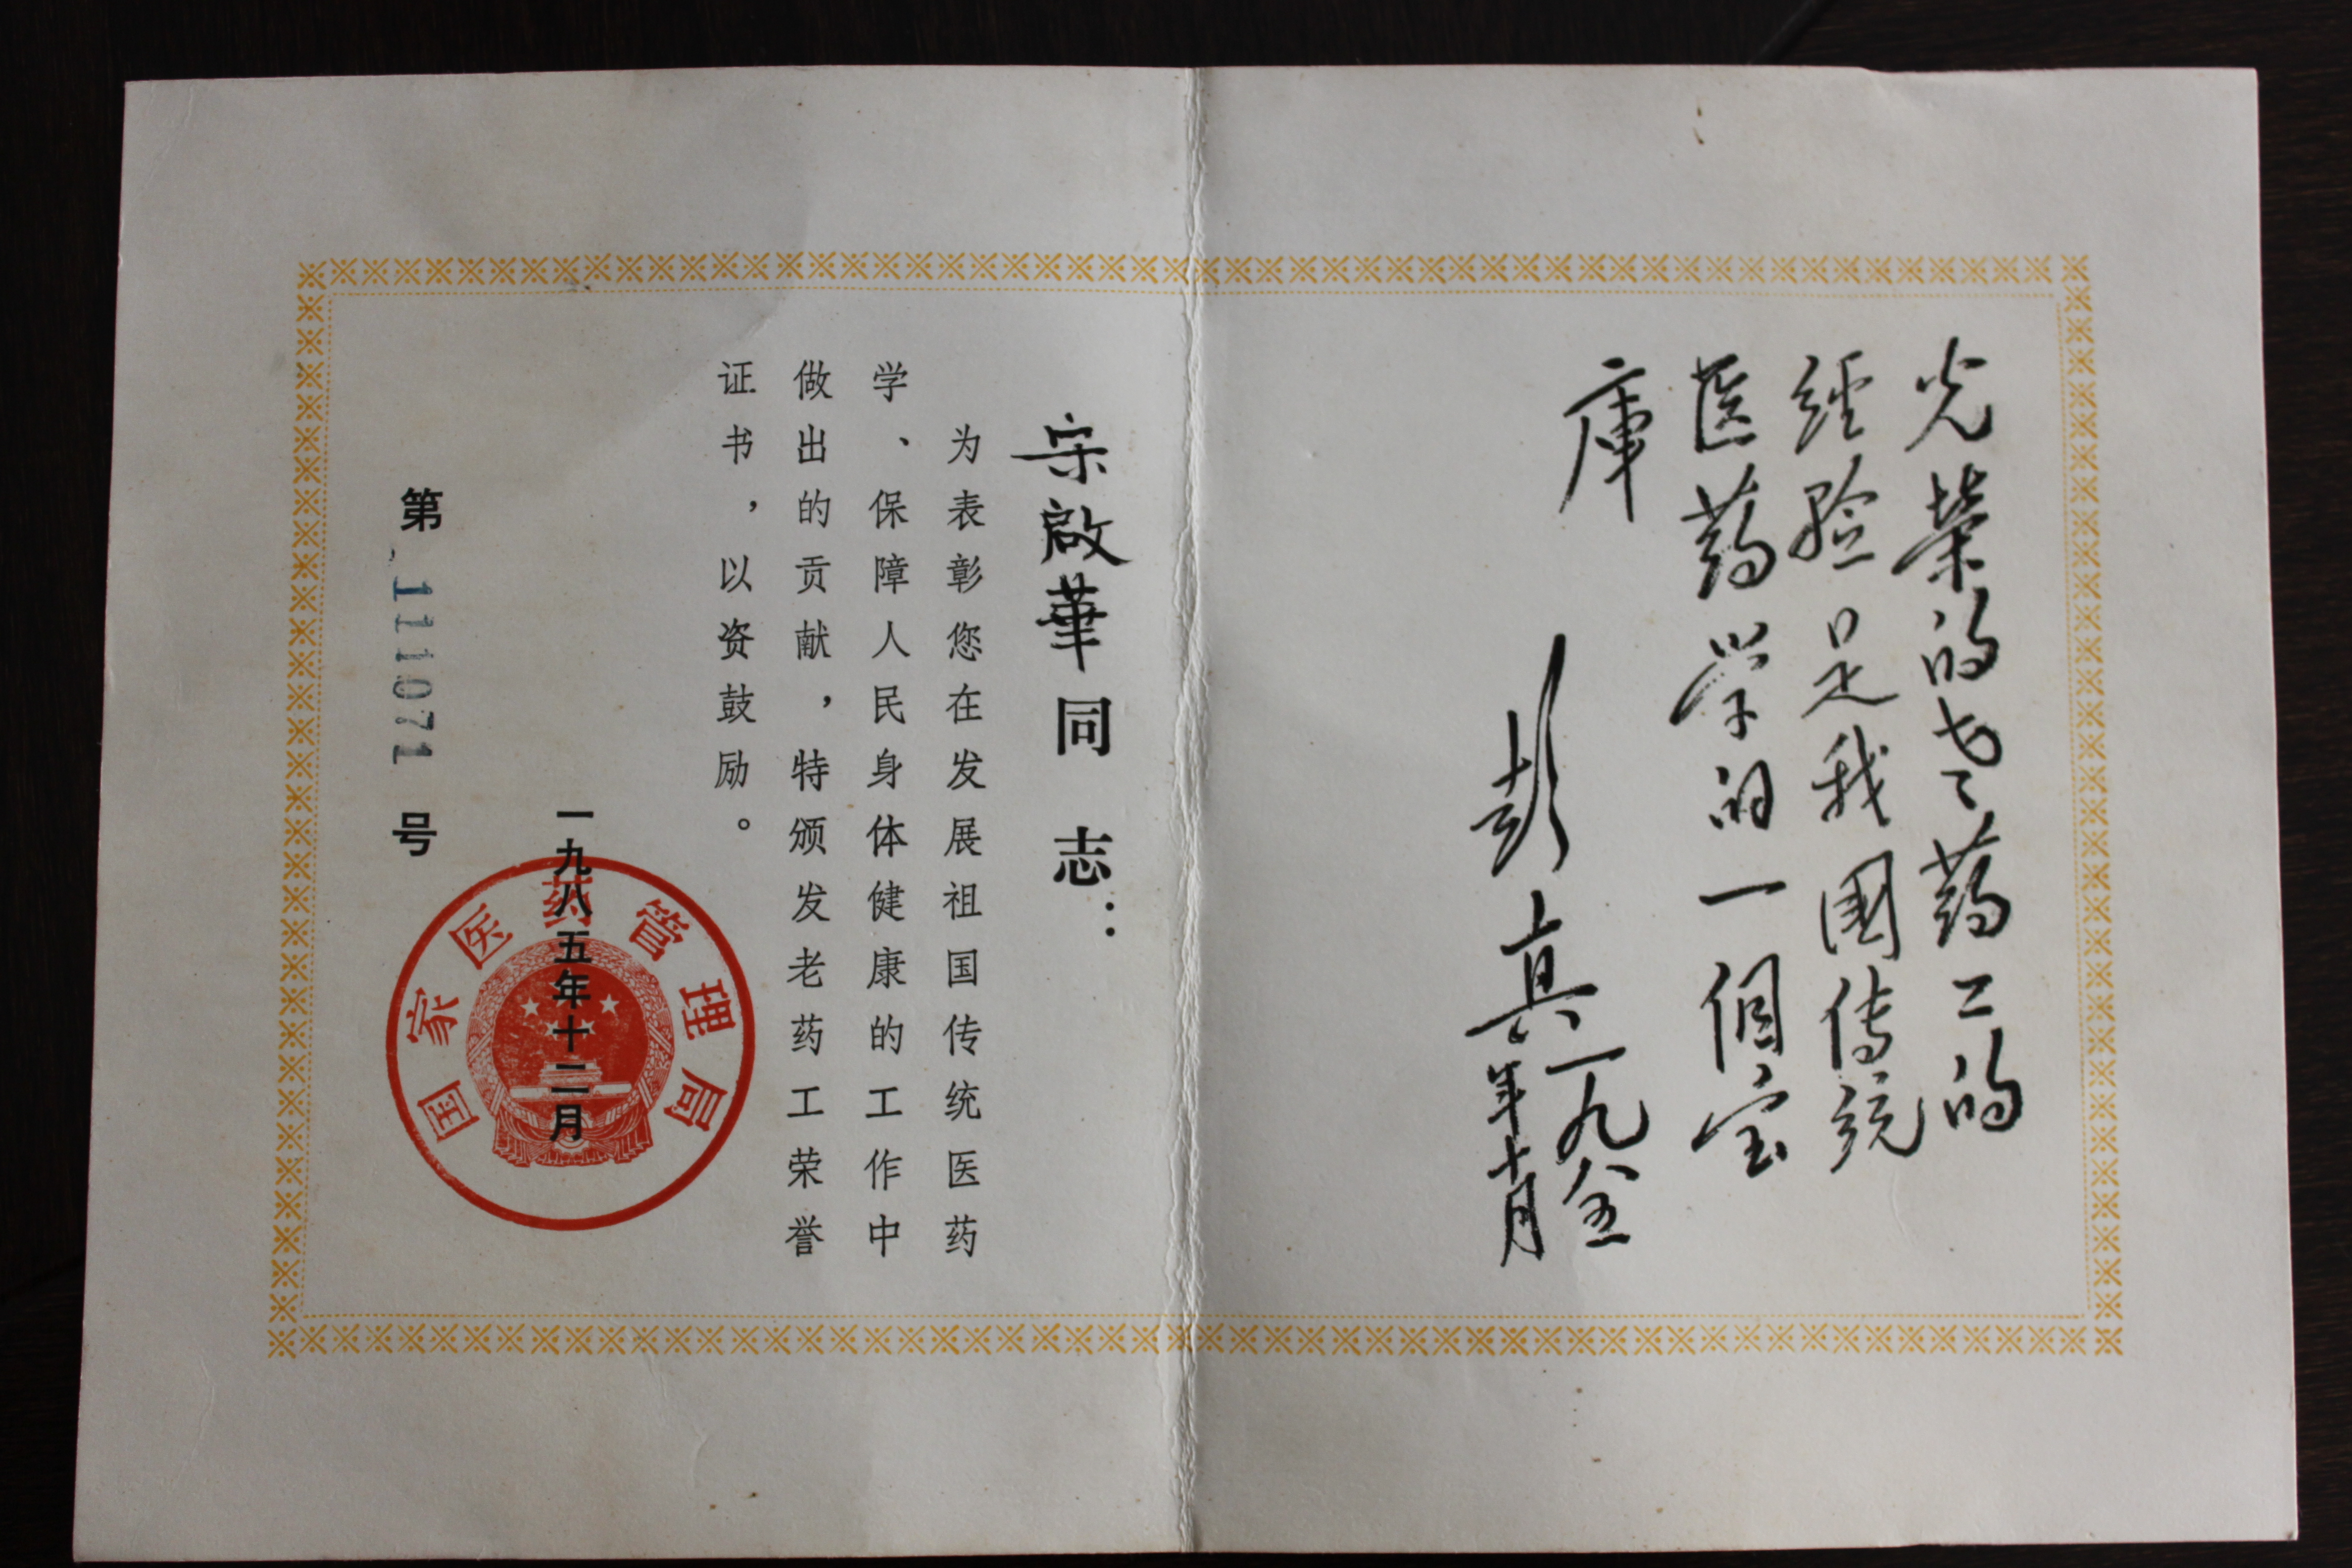 光榮的老药工的
经验是我國传统
医药学的一個宝
庫
彭真 一九八五
年十月
宗啟華同志：
为表彰您在发展祖国传统医药
学、保障人民身体健康的工作中
做出的贡献，特颁发老药工荣誉
证书，以资鼓励。
一九八五年十二月
国家医药管理局
第 111071 号